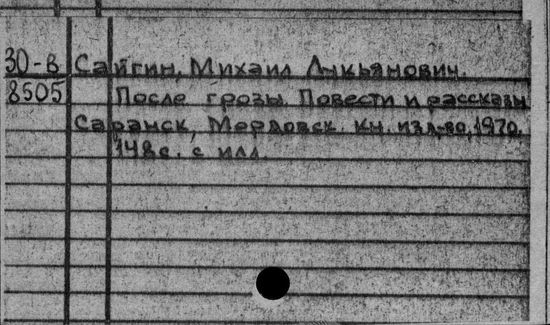 30-В Сайгин, Михаил Лукьянович.
8505 После грозы. Повести и рассказы
Саранск, Мордовск. кн. изд-во, 1970.
148 с. с илл.